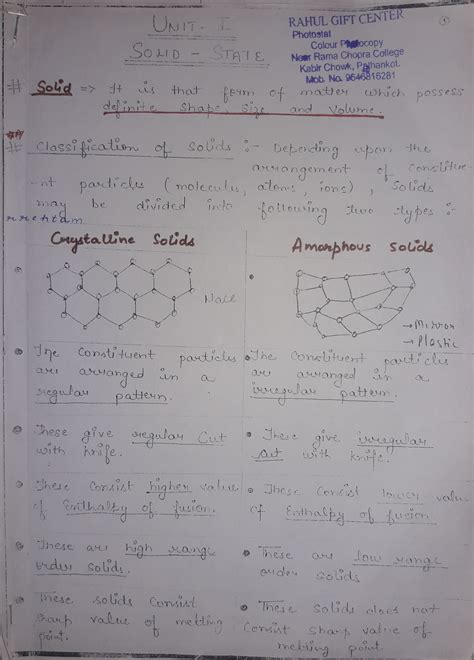 UNIT-I
SOLID-STATE
RAHUL GIFT CENTER
Photostat
Colour Photocopy
Near Rama Chopra College
Kabir Chowk, Pathankot.
Mob. No. 9646816281
# Solid => It is that form of matter which possess
definite shape, size and volume.
# Classification of Solids :- Depending upon the
arrangement of constitue-
nt particles (molecules, atoms, ions), Solids
may be divided into following two types :-
Crystalline Solids
NaCl
The Constituent particles
are arranged in a
regular pattern.
These give regular Cut
with knife.
These Consist higher value
of Enthalpy of fusion.
These are high range
order solids.
These solids Consist
sharp value of melting
point.
Amorphous solids
→ Mirror
→ Plastic
The Constituent particles
are arranged in a
irregular pattern.
These give irregular
cut with knife.
These Consist lower value
of Enthalpy of fusion
These are low range
order solids
These Solids does not
Consist sharp value of
melting point